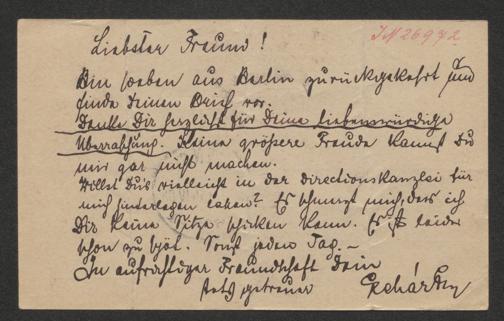 I.N. 26972
Liebster Freund!
Bin soeben aus Berlin zurückgekehrt und
finde Deinen Brief vor.
Danke Dir herzlichst für Deine liebenswürdige
Überraschung. Keine größere Freude kannst Du
mir gar nicht machen.
Willst Du's vielleicht in der Directionskanzlei für
mich hinterlegen lassen? Es schmerzt mich, dass ich
Dir keine Sitze schicken kann. Es ist leider
schon zu spät. Sonst jeden Tag. –
In aufrichtiger Freundschaft Dein
stets getreuer